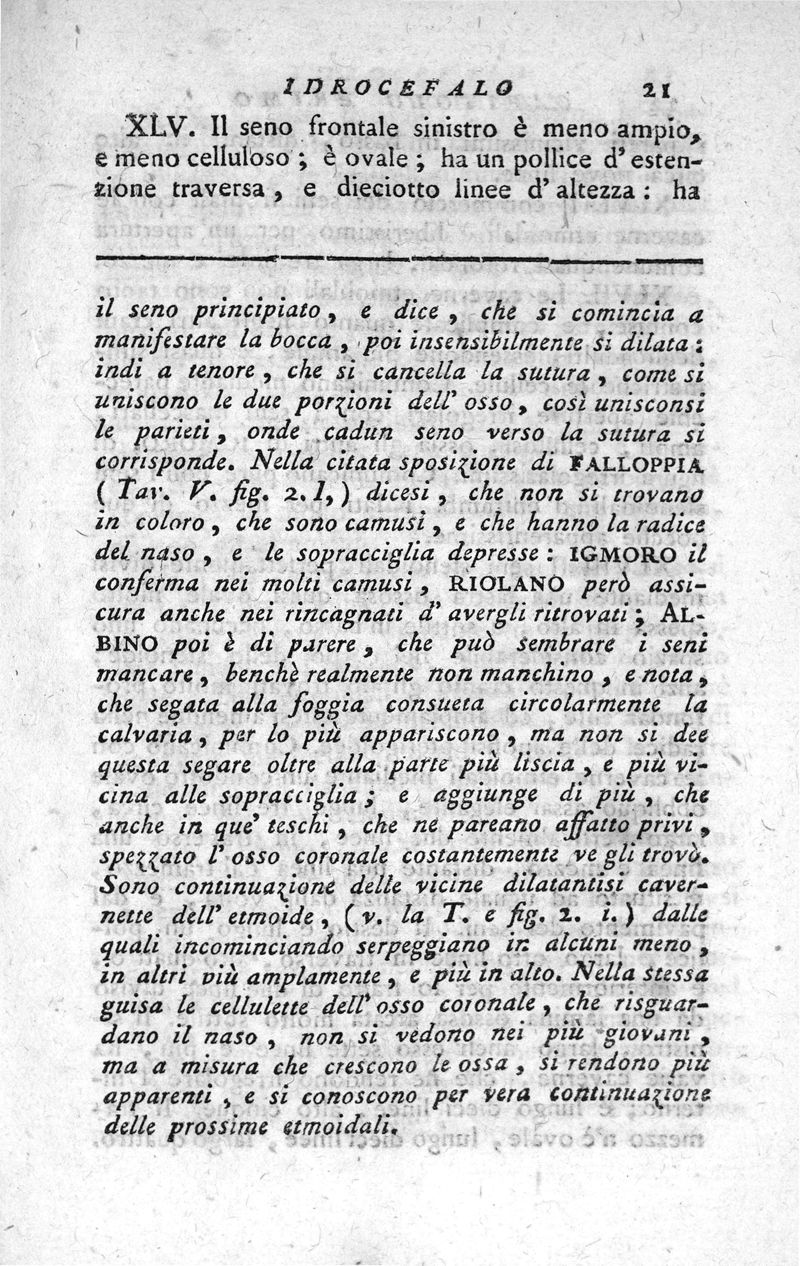 IDROCEFALO 21
XLV. Il seno frontale sinistro è meno ampio,
e meno celluloso ; è ovale ; ha un pollice d' esten-
zione traversa , e dieciotto linee d' altezza : ha
il seno principiato , e dice , che si comincia a
manifestare la bocca , poi insensibilmente si dilata :
indi a tenore , che si cancella la sutura , come si
uniscono le due porzioni dell' osso , così unisconsi
le parieti , onde cadun seno verso la sutura si
corrisponde. Nella citata sposizione di FALLOPPIA
( Tav. V. fig. 2. l, ) dicesi , che non si trovano
in coloro , che sono camusi , e che hanno la radice
del naso , e le sopracciglia depresse : IGMORO il
conferma nei molti camusi , RIOLANO però assi-
cura anche nei rincagnati d' avergli ritrovati ; AL-
BINO poi è di parere , che può sembrare i seni
mancare , benchè realmente non manchino , e nota ,
che segata alla foggia consueta circolarmente la
calvaria , per lo più appariscono , ma non si dee
questa segare oltre alla parte più liscia , e più vi-
cina alle sopracciglia ; e aggiunge di più , che
anche in que' teschi , che ne pareano affatto privi ,
spezzato l' osso coronale costantemente ve gli trovò.
Sono continuazione delle vicine dilatantisi caver-
nette dell' etmoide , ( v. la T. e fig. 2. i. ) dalle
quali incominciando serpeggiano in alcuni meno ,
in altri più amplamente , e più in alto. Nella stessa
guisa le cellulette dell' osso coronale , che risguar-
dano il naso , non si vedono nei più giovani ,
ma a misura che crescono le ossa , si rendono più
apparenti , e si conoscono per vera continuazione
delle prossime etmoidali.